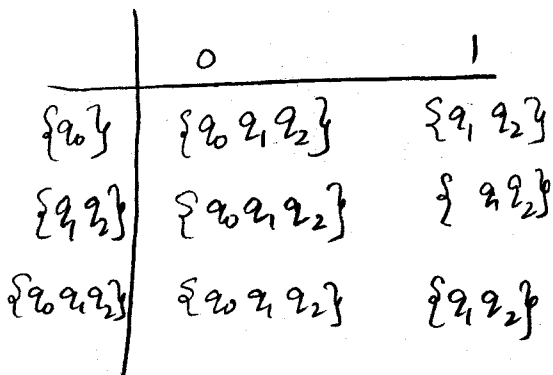 0 1
{q₀} {q₀ q₁ q₂} {q₁ q₂}
{q₁ q₂} {q₀ q₁ q₂} {q₁ q₂}
{q₀ q₁ q₂} {q₀ q₁ q₂} {q₁ q₂}